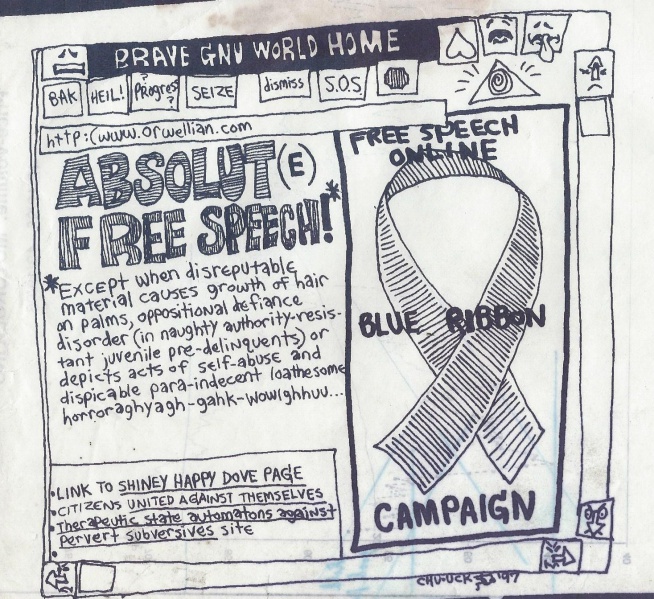 BRAVE GNU WORLD HOME
BAK
HEIL!
?
Progres
?
SEIZE
dismiss
S.O.S.
http:(www.Orwellian.com
ABSOLUT(E)
FREE SPEECH!*
*EXCEPT when disreputable
material causes growth of hair
on palms, oppositional defiance
disorder (in naughty authority-resis-
tant juvenile pre-delinquents) or
depicts acts of self-abuse and
dispicable para-indecent loathesome
horroraghyagh-gahk-wowighhuu...
FREE SPEECH
ONLINE
BLUE RIBBON
CAMPAIGN
•LINK TO SHINEY HAPPY DOVE PAGE
•CITIZENS UNITED AGAINST THEMSELVES
•Therapeutic state automatons against
pervert subversives site
•
CHU-UCK '97